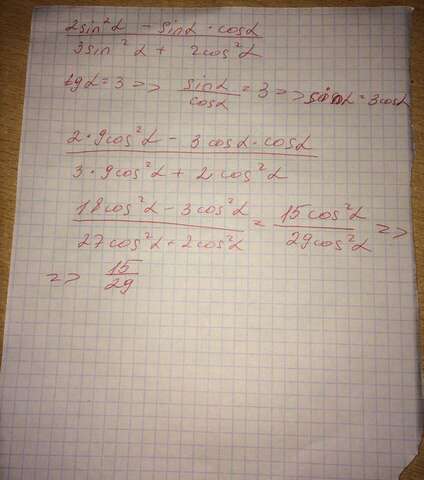 2sin²α - sinα · cosα
3sin²α + 2cos²α
tgα = 3 => sinα/cosα = 3 => sinα = 3cosα
2·9cos²α - 3cosα·cosα
3·9cos²α + 2cos²α
18cos²α - 3cos²α / 27cos²α + 2cos²α = 15cos²α / 29cos²α =>
=> 15/29